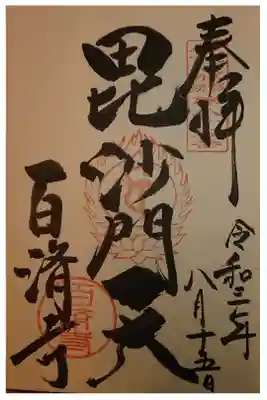 奉拝
令和三年
八月十五日
毘沙門天
百済寺